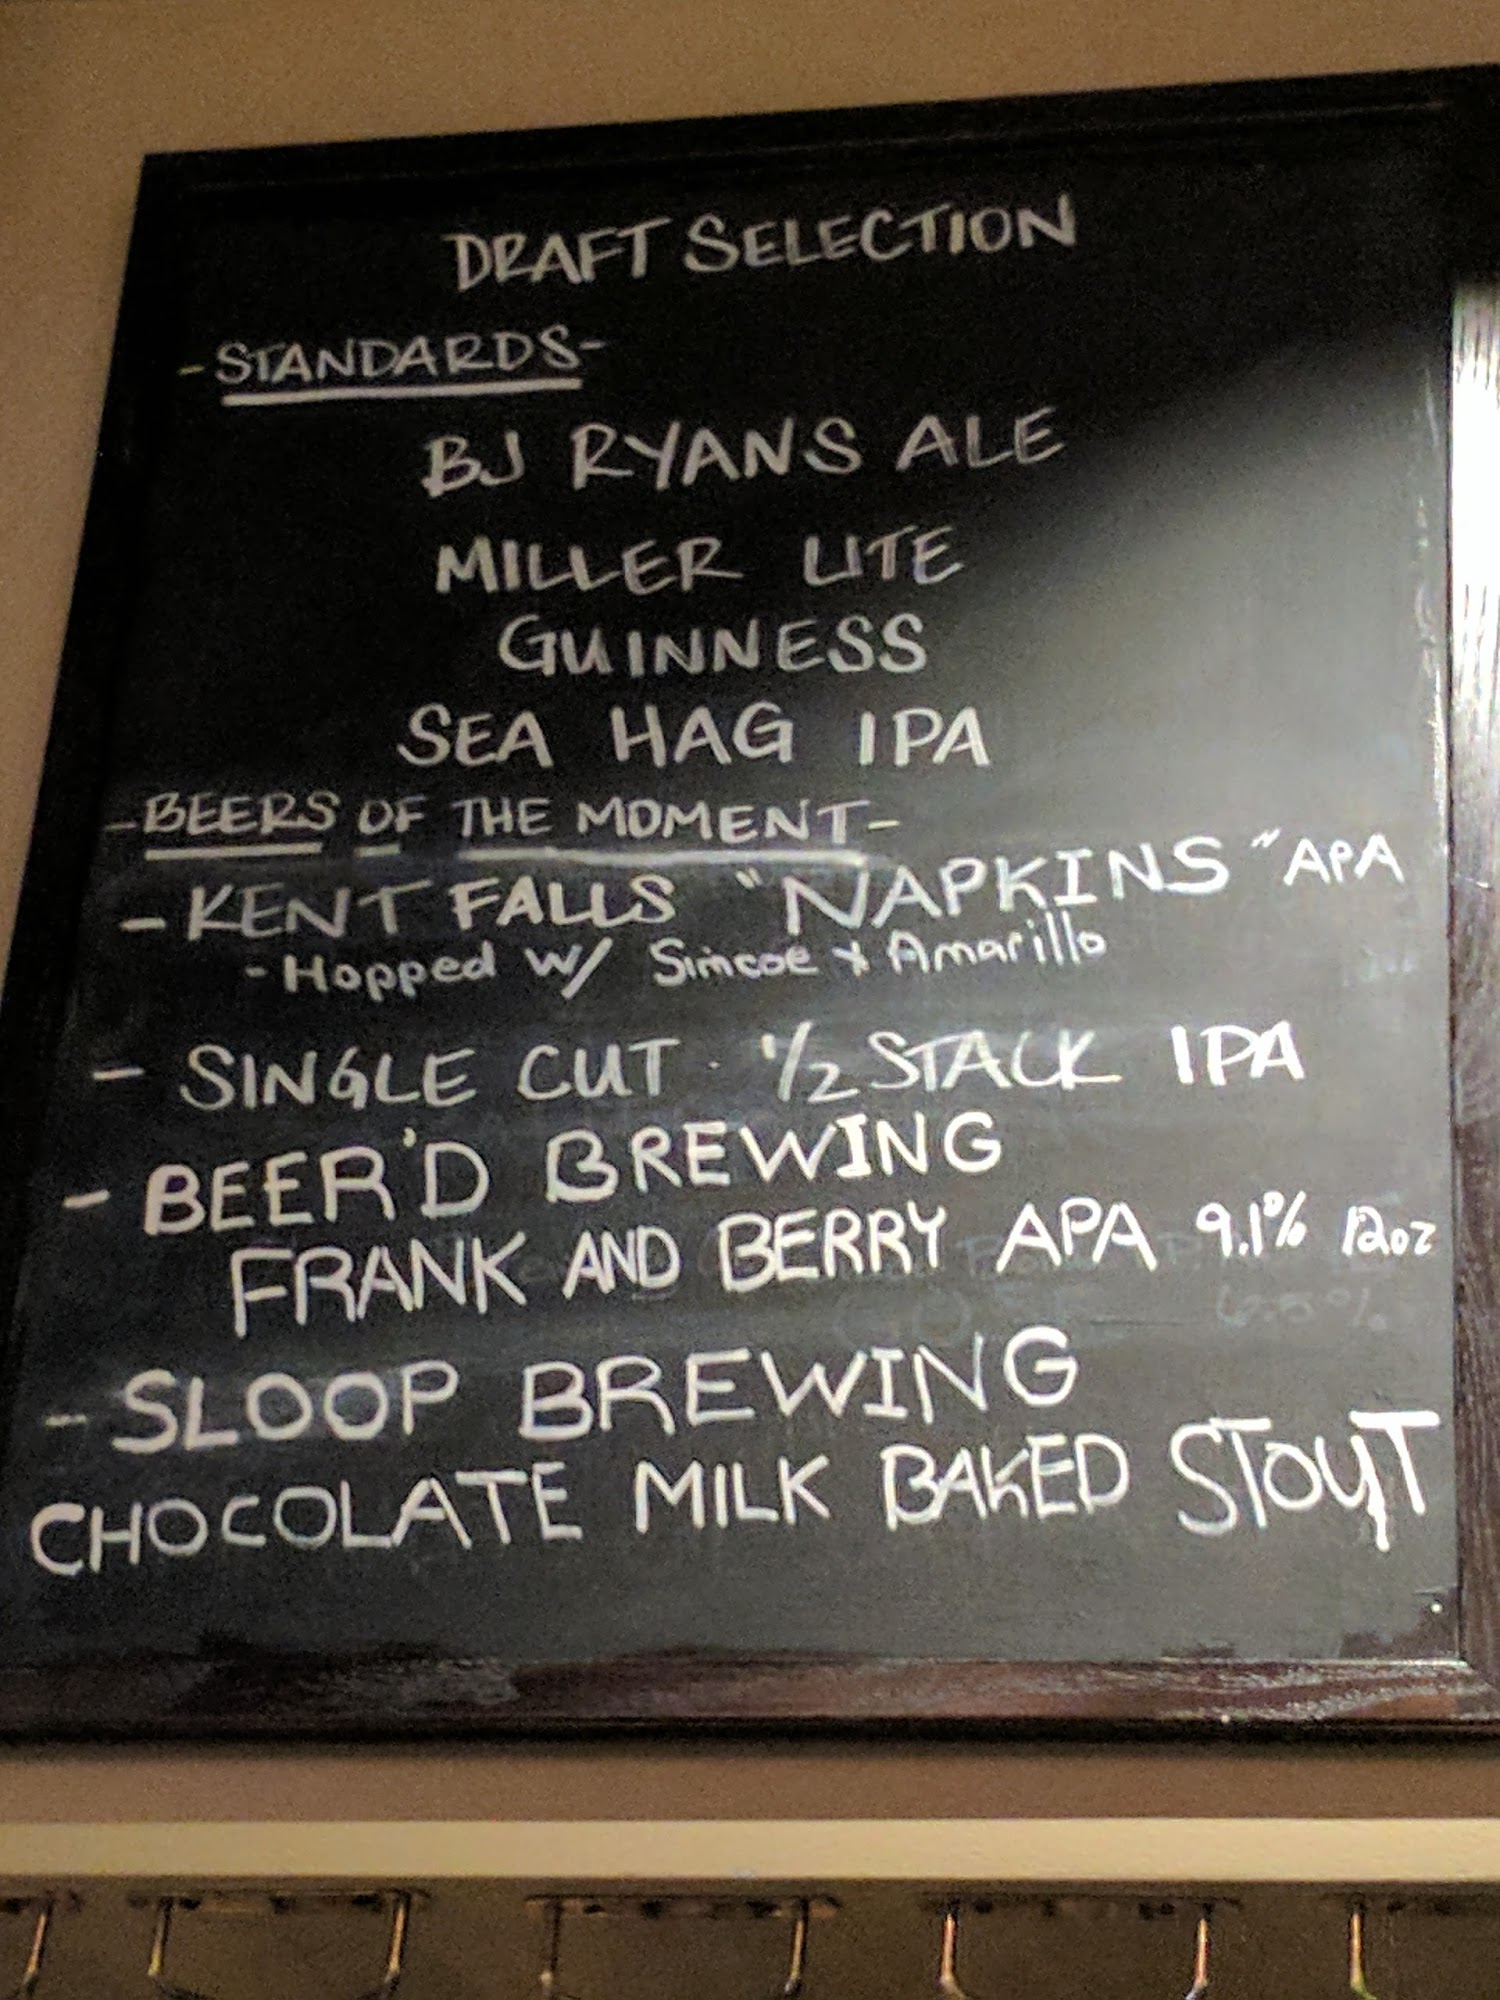 DRAFT SELECTION
-STANDARDS-
BJ RYANS ALE
MILLER LITE
GUINNESS
SEA HAG IPA
-BEERS OF THE MOMENT-
- KENT FALLS "NAPKINS" APA
- Hopped w/ Simcoe + Amarillo
- SINGLE CUT · 1/2 STACK IPA
- BEER'D BREWING
FRANK AND BERRY APA 9.1% 12oz
- SLOOP BREWING
CHOCOLATE MILK BAKED STOUT